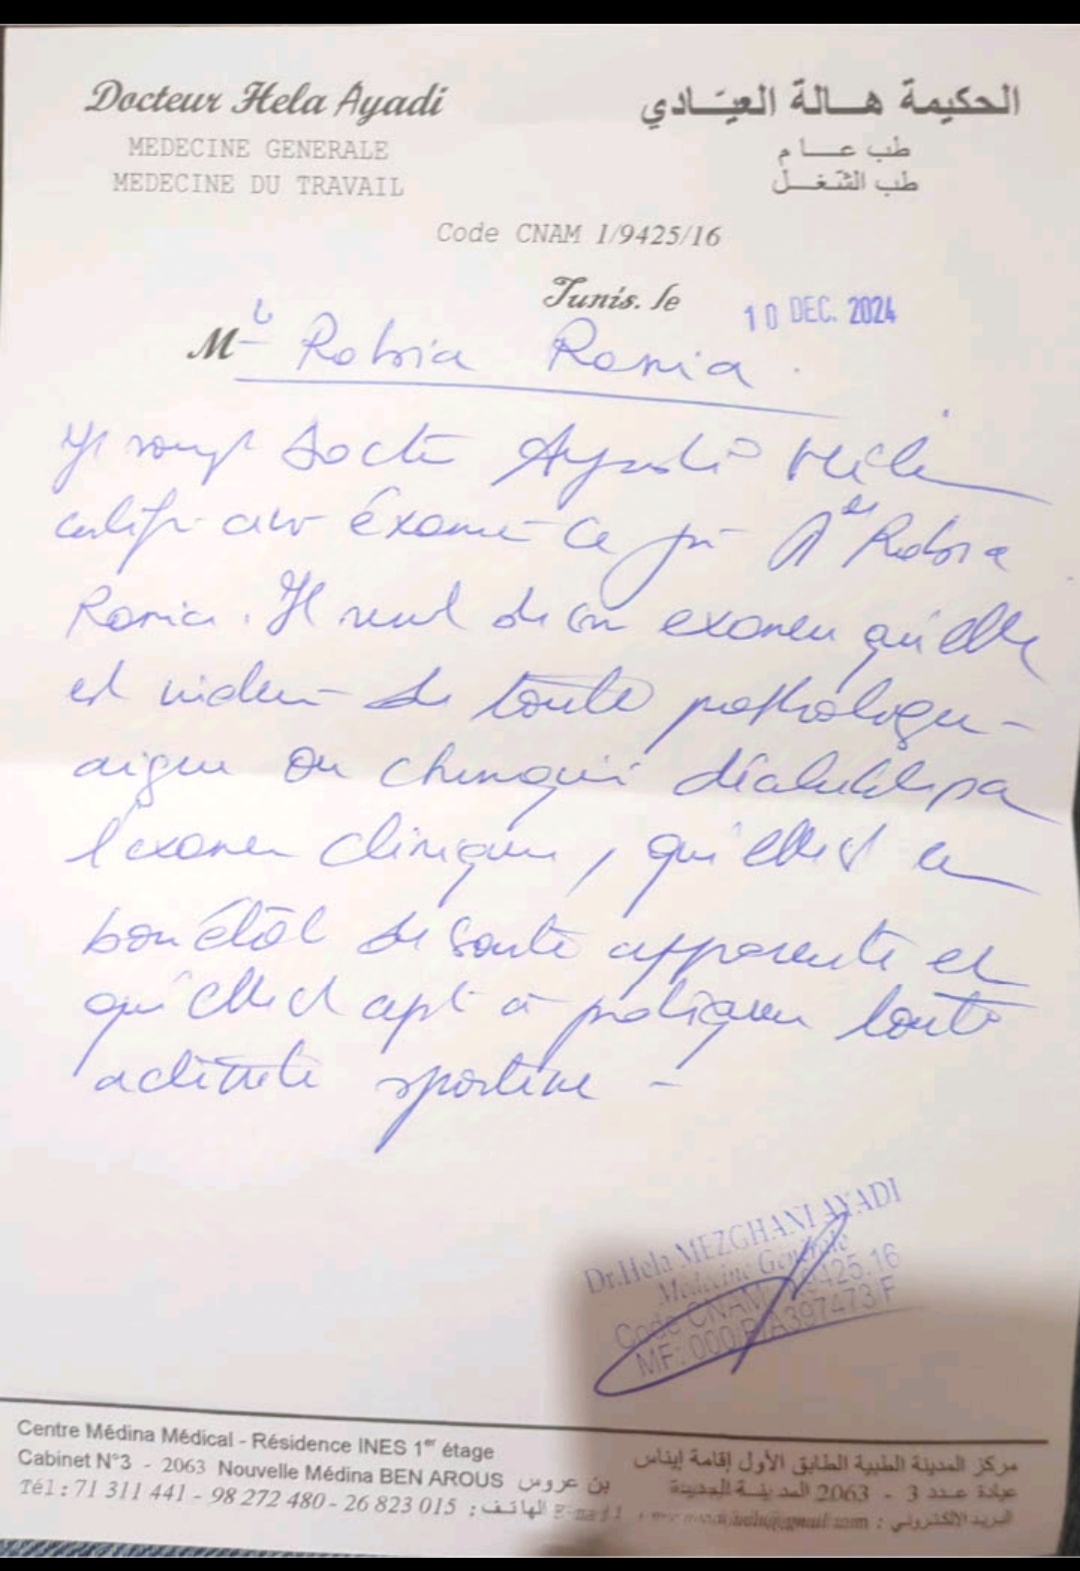 Docteur Hela Ayadi
MEDECINE GENERALE
MEDECINE DU TRAVAIL
الحكيمة هالة العيّادي
طب عام
طب الشغل
Code CNAM 1/9425/16
Tunis. le 10 DEC. 2024
M Rania
Docte
examiné ce Mlle
Rania. Il de son examen qu'elle
est de toute pathologie
aigue ou par
l'examen clinique, qu'elle est en
bon état de santé apparente et
qu'elle est apte à pratiquer toute
activité sportive -
Dr. Hela MEZGHANI AYADI
Médecine Générale
Code CNAM 9425.16
MF: 000 P/A397473/F
Centre Médina Médical - Résidence INES 1er étage
Cabinet N°3 - 2063 Nouvelle Médina BEN AROUS بن عروس
Tél : 71 311 441 - 98 272 480 - 26 823 015 : الهاتف
مركز المدينة الطبية الطابق الأول إقامة إيناس
عيادة عدد 3 - 2063 المدينة الجديدة
البريد الالكتروني :